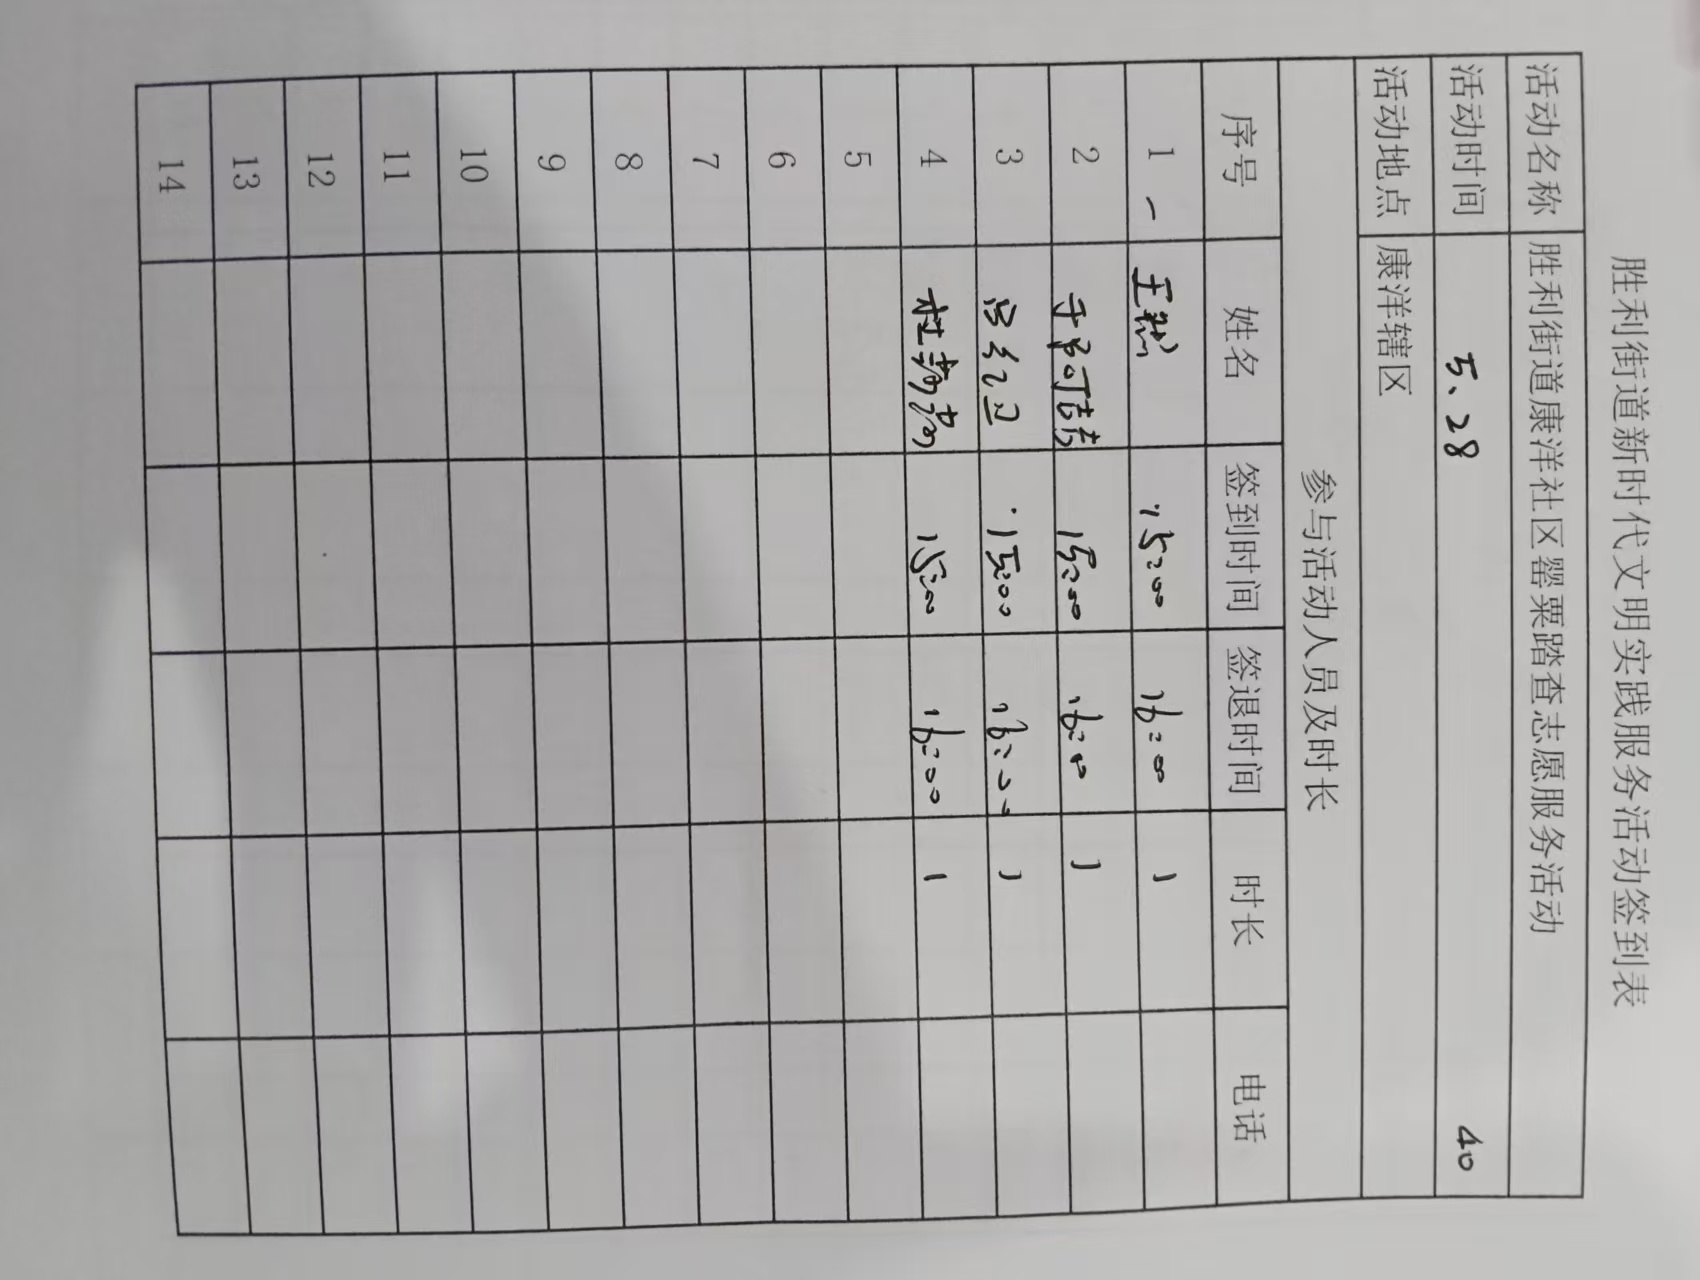 胜利街道新时代文明实践服务活动签到表
活动名称 胜利街道康洋社区罂粟踏查志愿服务活动
活动时间 5.28 40
活动地点 康洋辖区
参与活动人员及时长
序号 姓名 签到时间 签退时间 时长 电话
1 王 15:00 16:00 1
2 15:00 16:00 1
3 吕红卫 15:00 16:00 1
4 杜菊芳 15:00 16:00 1
5
6
7
8
9
10
11
12
13
14